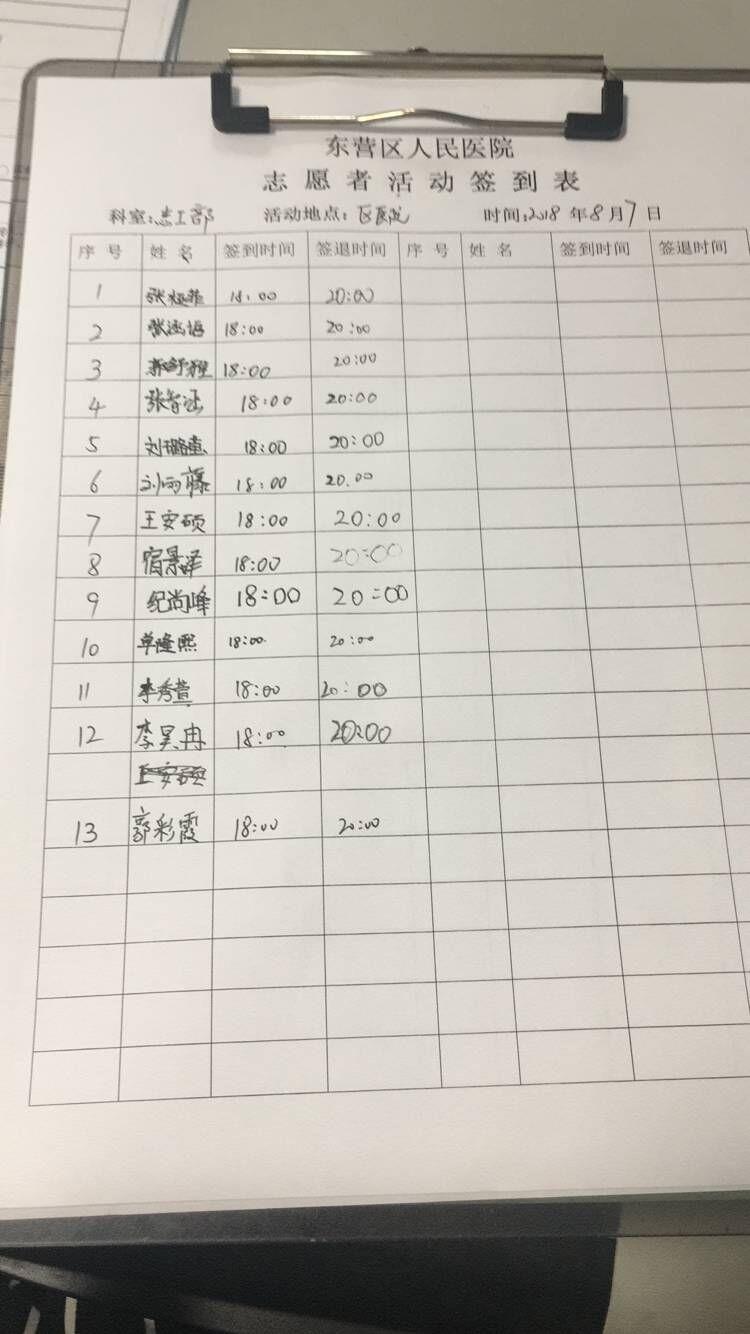 东营区人民医院
志愿者活动签到表
科室:志工部 活动地点:区医院 时间:2018年8月7日
序号 姓名 签到时间 签退时间 序号 姓名 签到时间 签退时间
1 18:00 20:00
2 18:00 20:00
3 18:00 20:00
4 张智涵 18:00 20:00
5 18:00 20:00
6 刘雨藤 18:00 20.00
7 王安硕 18:00 20:00
8 宿景泽 18:00 20:00
9 纪尚峰 18:00 20:00
10 单隆熙 18:00 20:00
11 李秀萱 18:00 20:00
12 李昊冉 18:00 20:00
王安硕
13 郭彩霞 18:00 20:00